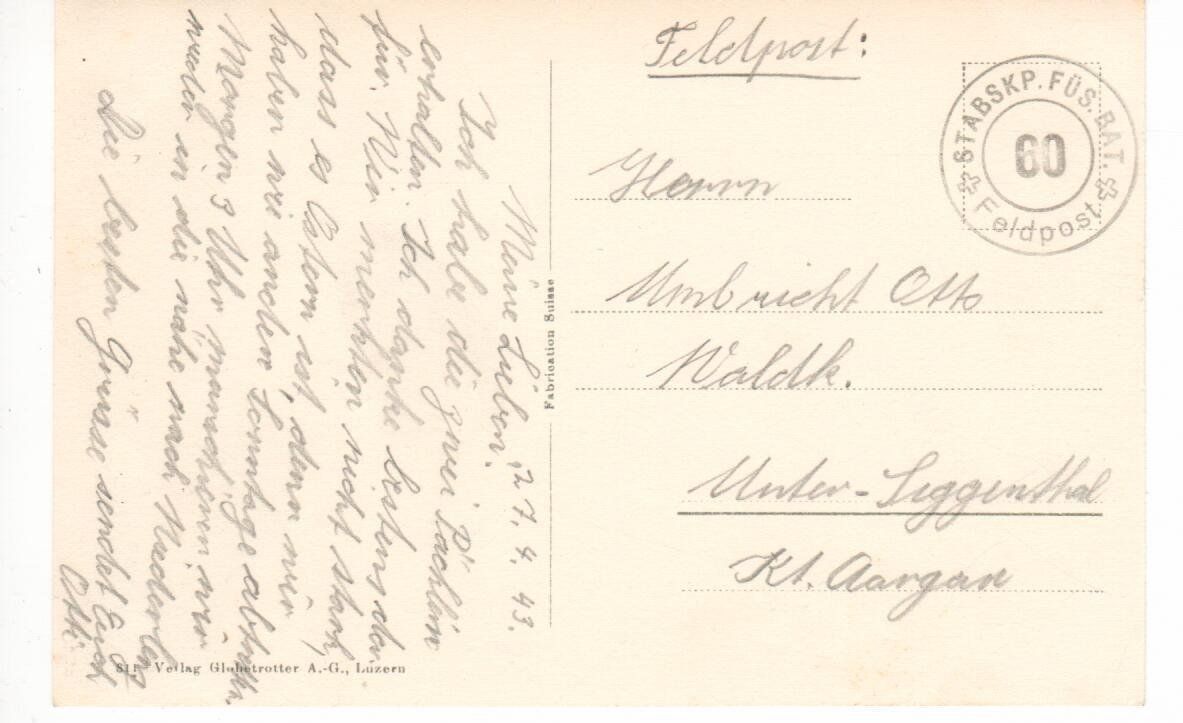 Feldpost:
STABSKP. FÜS. BAT.
60
Feldpost
Herrn
Umbricht Otto
Waldk.
Unter-Siggenthal
Kt. Aargau
Fabrication Suisse
27. 4. 43.
Meine Lieben.
Ich habe die zwei Päcklein
erhalten. Ich danke bestens da
für. Wir merkten nicht stark,
dass es Ostern ist, denn wir
haben wie anden Sonntage
Morgen 3 Uhr, marschieren wir
wieder in die nähe nach
Die besten Grüsse sendet Euch
Otti.
811 Verlag Globetrotter A.-G., Luzern